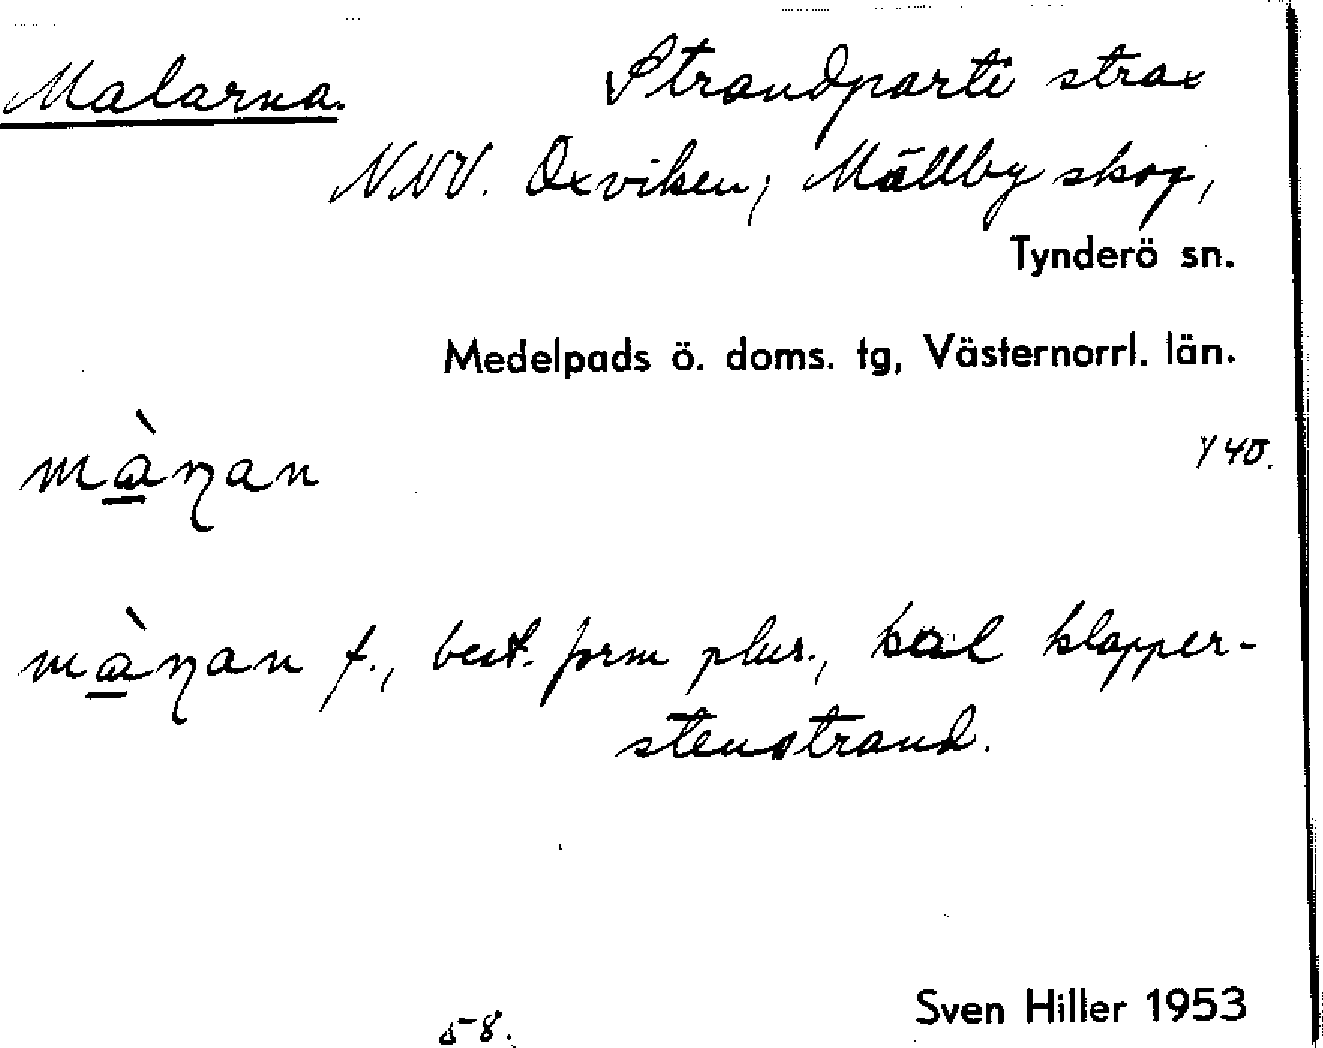 Malarna.
Strandparti strax
NNV. Oxviken, Mällby skog,
Tynderö sn.
Medelpads ö. doms. tg, Västernorrl. län.
Y 40.
màɽan
màɽan f., best. form plur., kal klapper-
stenstrand.
58.
Sven Hiller 1953